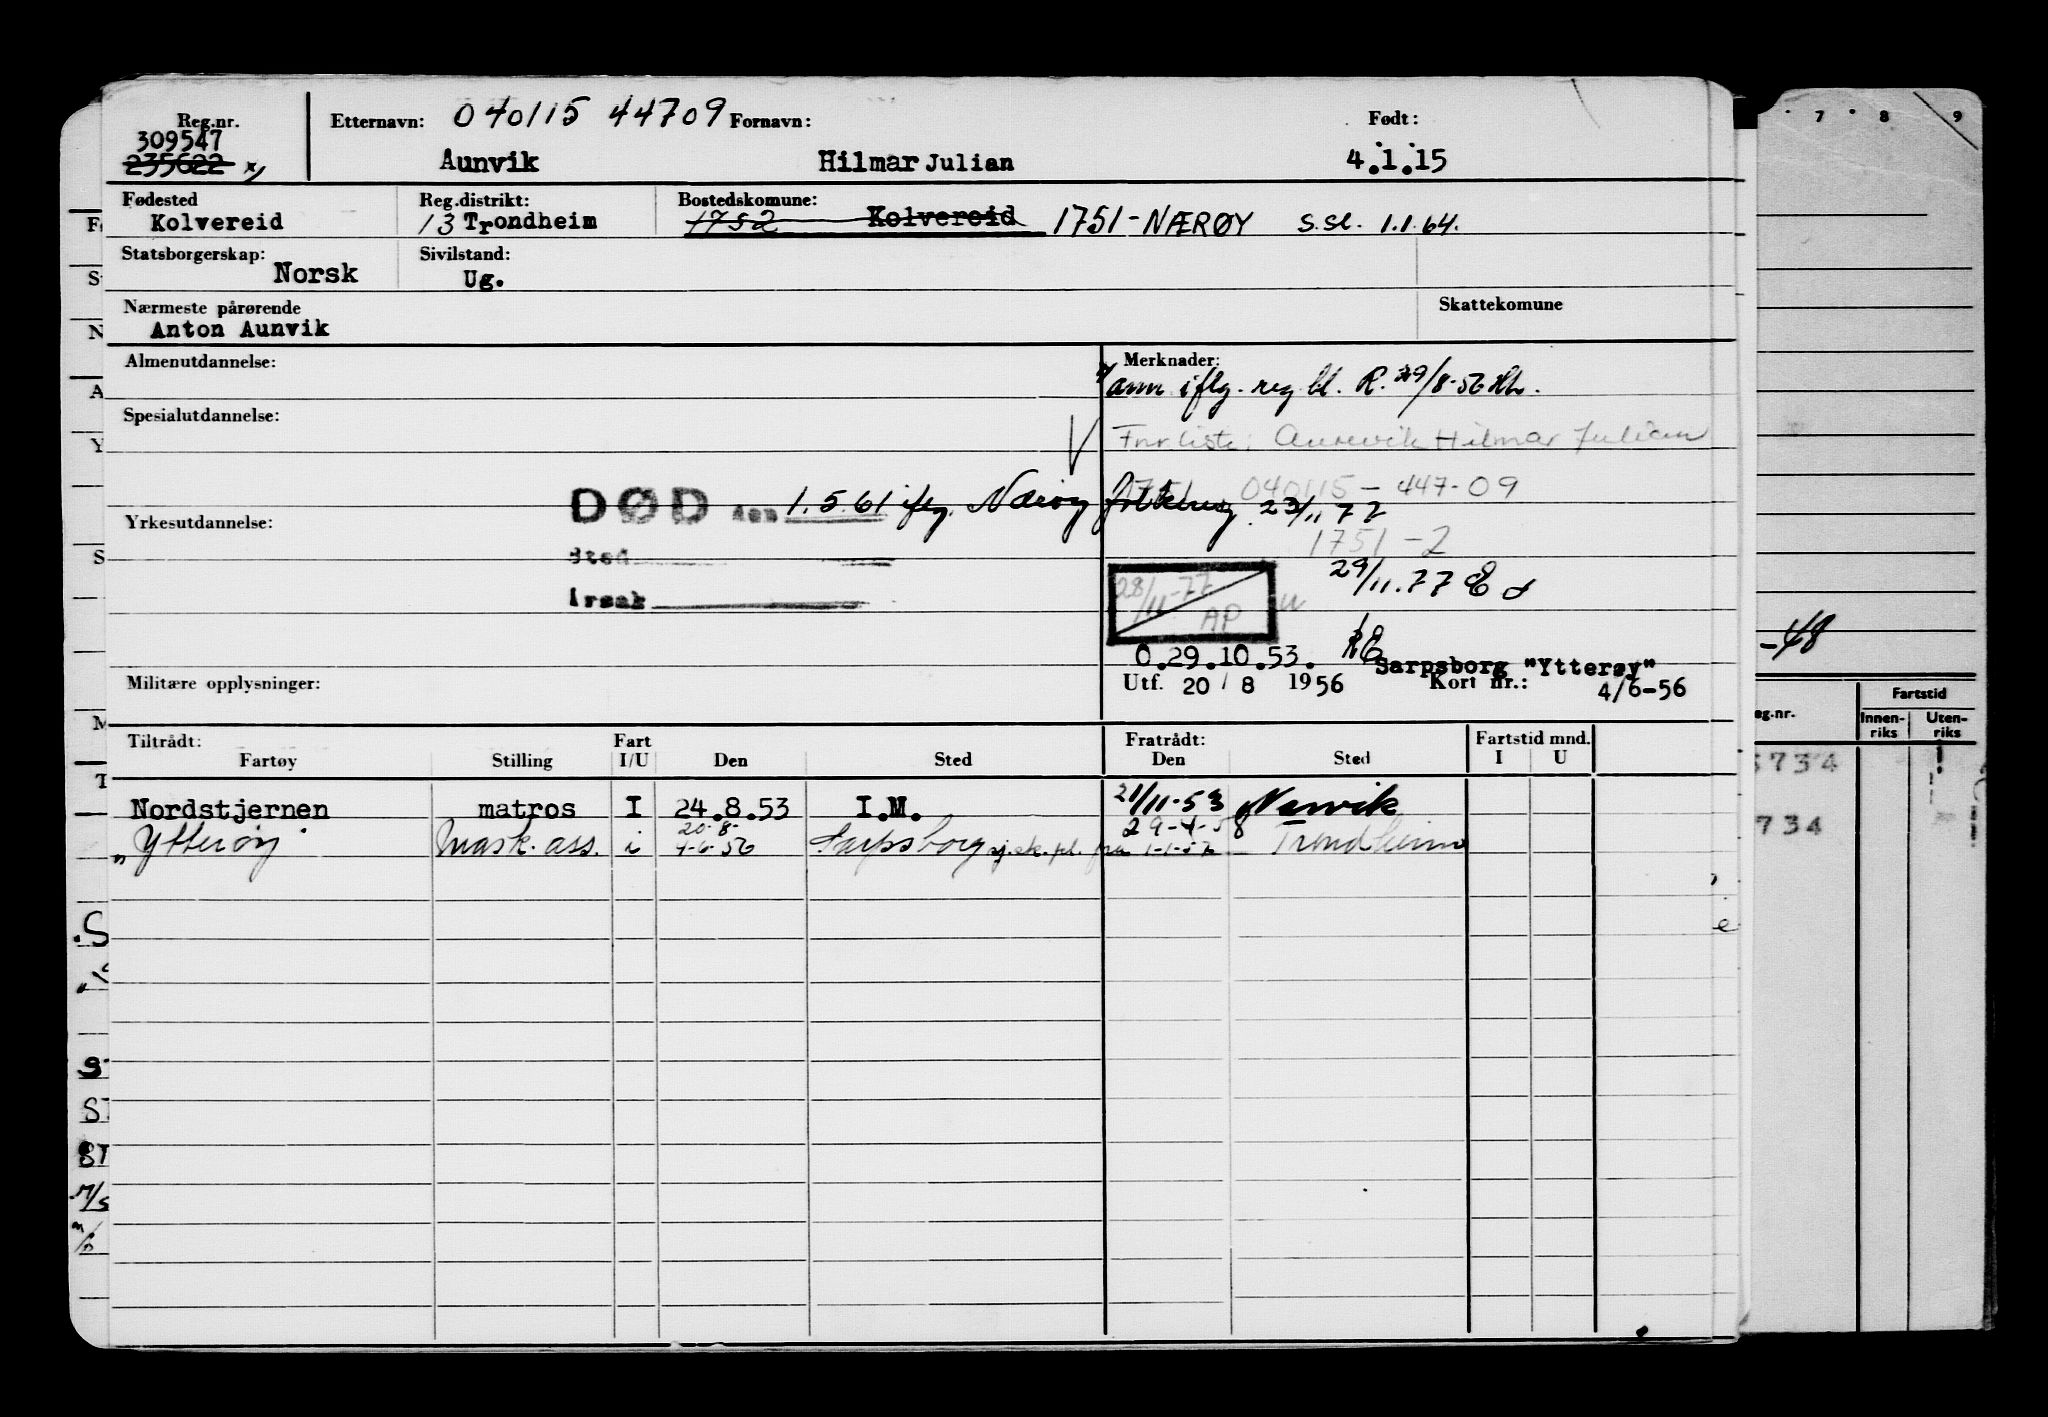 Reg.nr. Etternavn: 040115 44709 Fornavn: Født:
309547
235622 x) Aunvik Hilmar Julian 4.1.15
Fødested Reg.distrikt: Bostedskomune:
Kolvereid 13 Trondheim 1752 Kolvereid 1751-NÆRØY S.Sl. 1.1.64.
Statsborgerskap: Sivilstand:
Norsk Ug.
Nærmeste pårørende Skattekomune
Anton Aunvik
Almenutdannelse: Merknader:
x) ann iflg. reg bl. R. 29/8-56
Spesialutdannelse:
Fnr. liste: Aunevik Hilmar Julian
1751 040115-447-09
DØD den 1.5.61 iflg. Nærøy folkereg. 23/11 77
Yrkesutdannelse:
1751-2
Sted
29/11.77
Årsak
28/11-77
AP
0.29.10.53. Sarpsborg "Ytterøy"
Militære opplysninger: Utf. 20 / 8 1956 Kort nr.: 4/6-56
Tiltrådt: Fart Fratrådt: Fartstid mnd.
Fartøy Stilling I/U Den Sted Den Sted I U
Nordstjernen matros I 24.8.53 I.M. 21/11-53 Narvik
20-8- 29-4-58
"Ytterøy" Mask.ass. i 4-6-56 Sarpsborg sj.sk.pl. fra 1-1-57 Trondheim
7 8 9
-48
eg.nr. Fartstid
Innen-riks Uten-riks
734
734